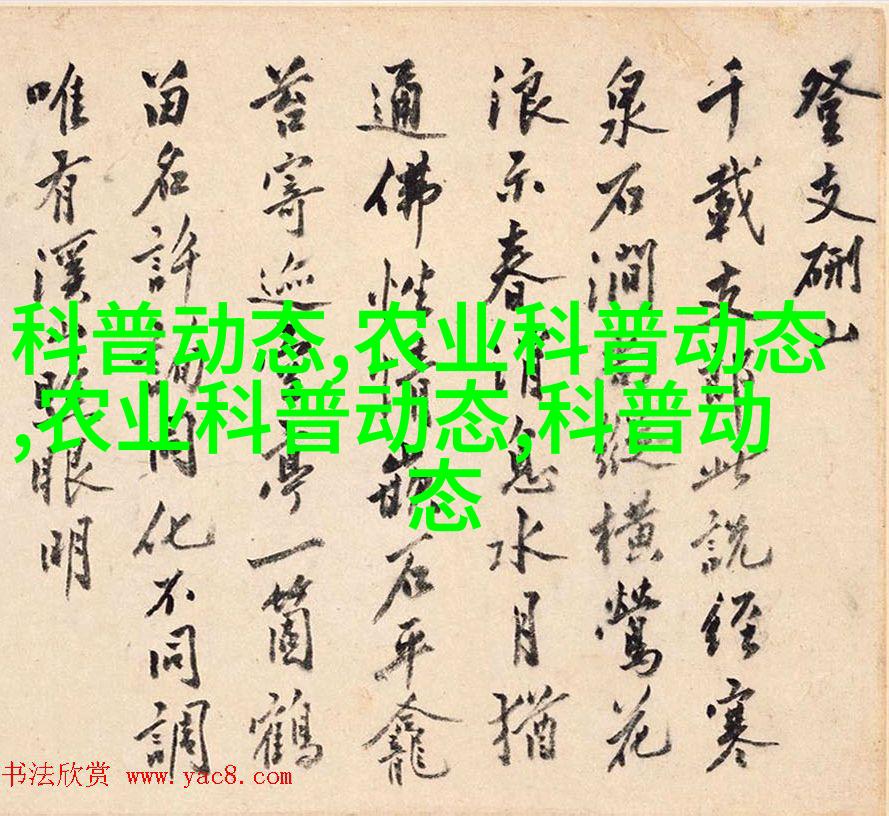 登支硎山
千載支郎此說經寒
泉石澗縱橫鶯花
浪示春消息水月猶
通佛性情石平龕
苔寄迹亭一箇鶴
留名許同化不同調
唯有溪山眼明
科普动态,农业科普动态
,农业科普动态,科普动
态
书法欣赏 www.yac8.com